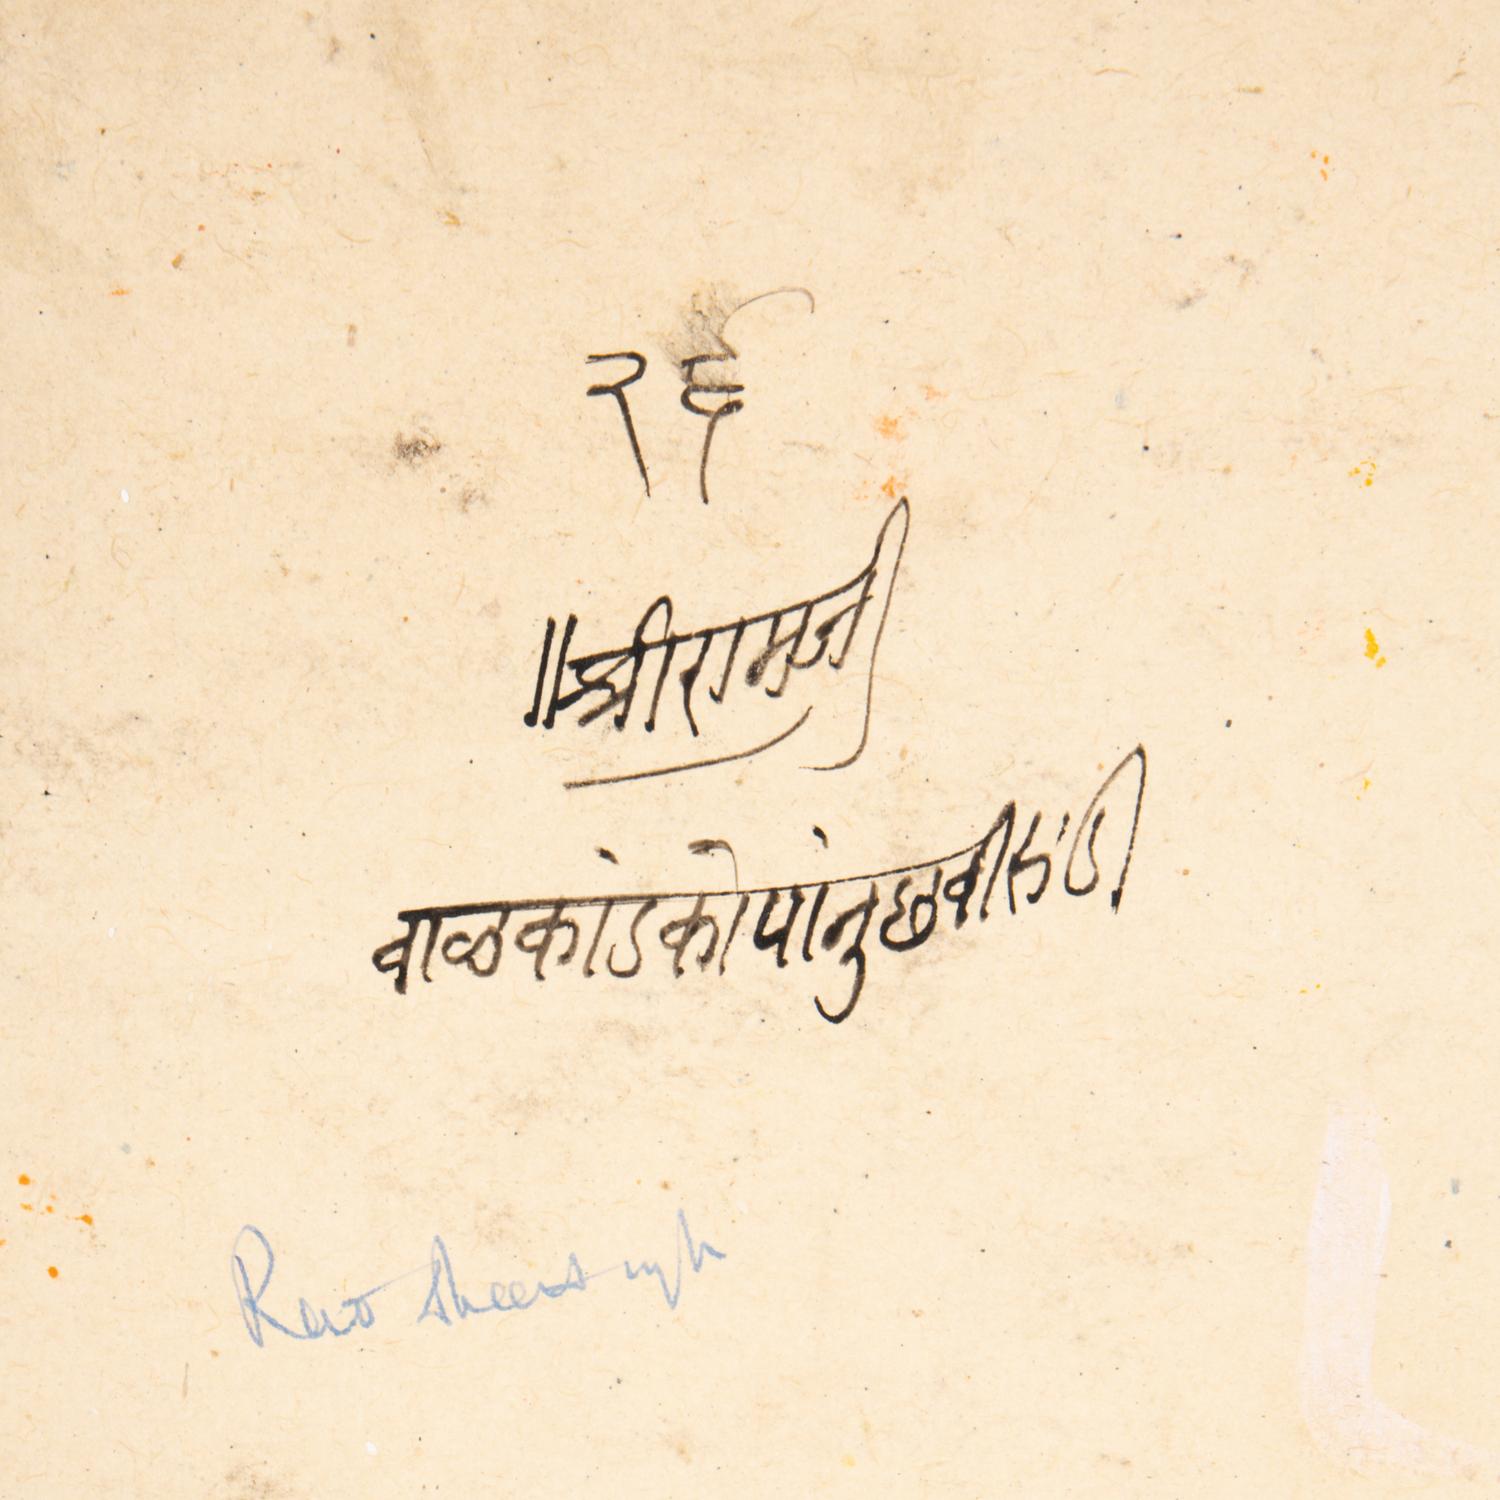 २६
॥श्रीरामजी
वाळकांडकोपांनुछवीसंडी
Rao Sheersingh